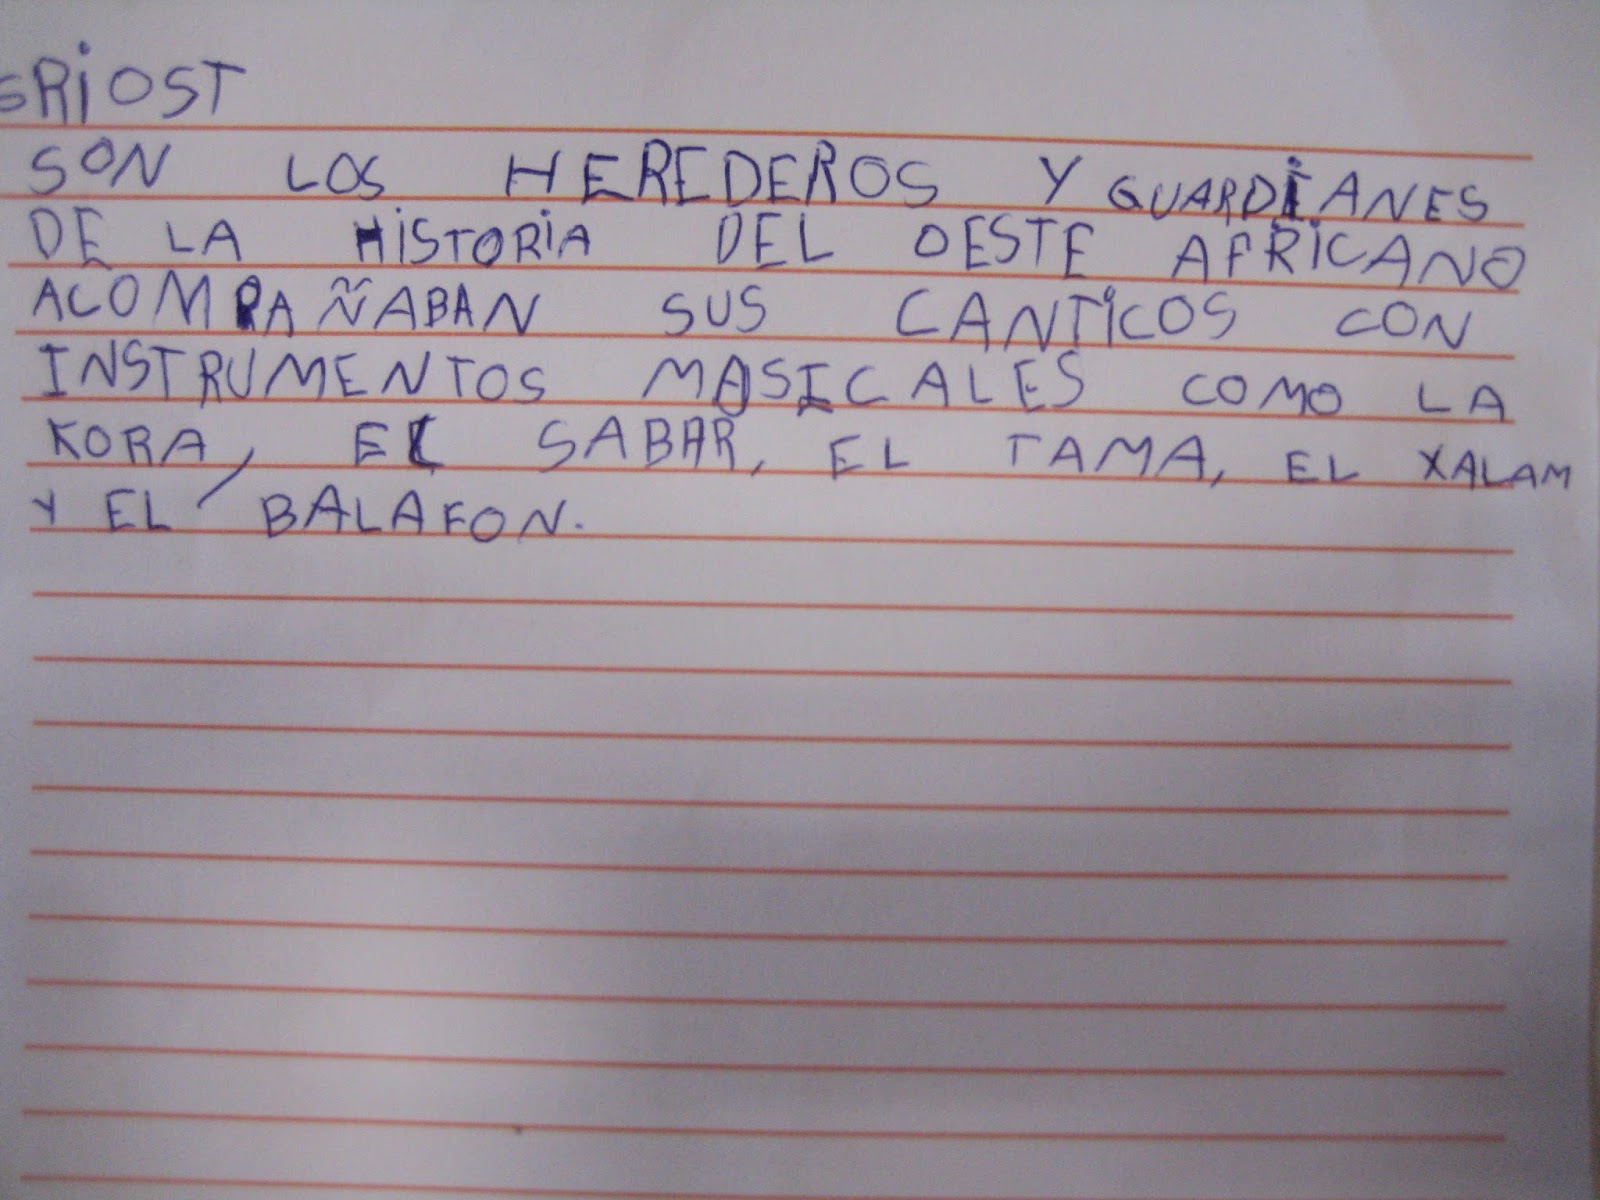 GRIOST
SON LOS HEREDEROS Y GUARDIANES
DE LA HISTORIA DEL OESTE AFRICANO
ACOMPAÑABAN SUS CANTICOS CON
INSTRUMENTOS MASICALES COMO LA
KORA, EL SABAR, EL TAMA, EL XALAM
Y EL BALAFON.